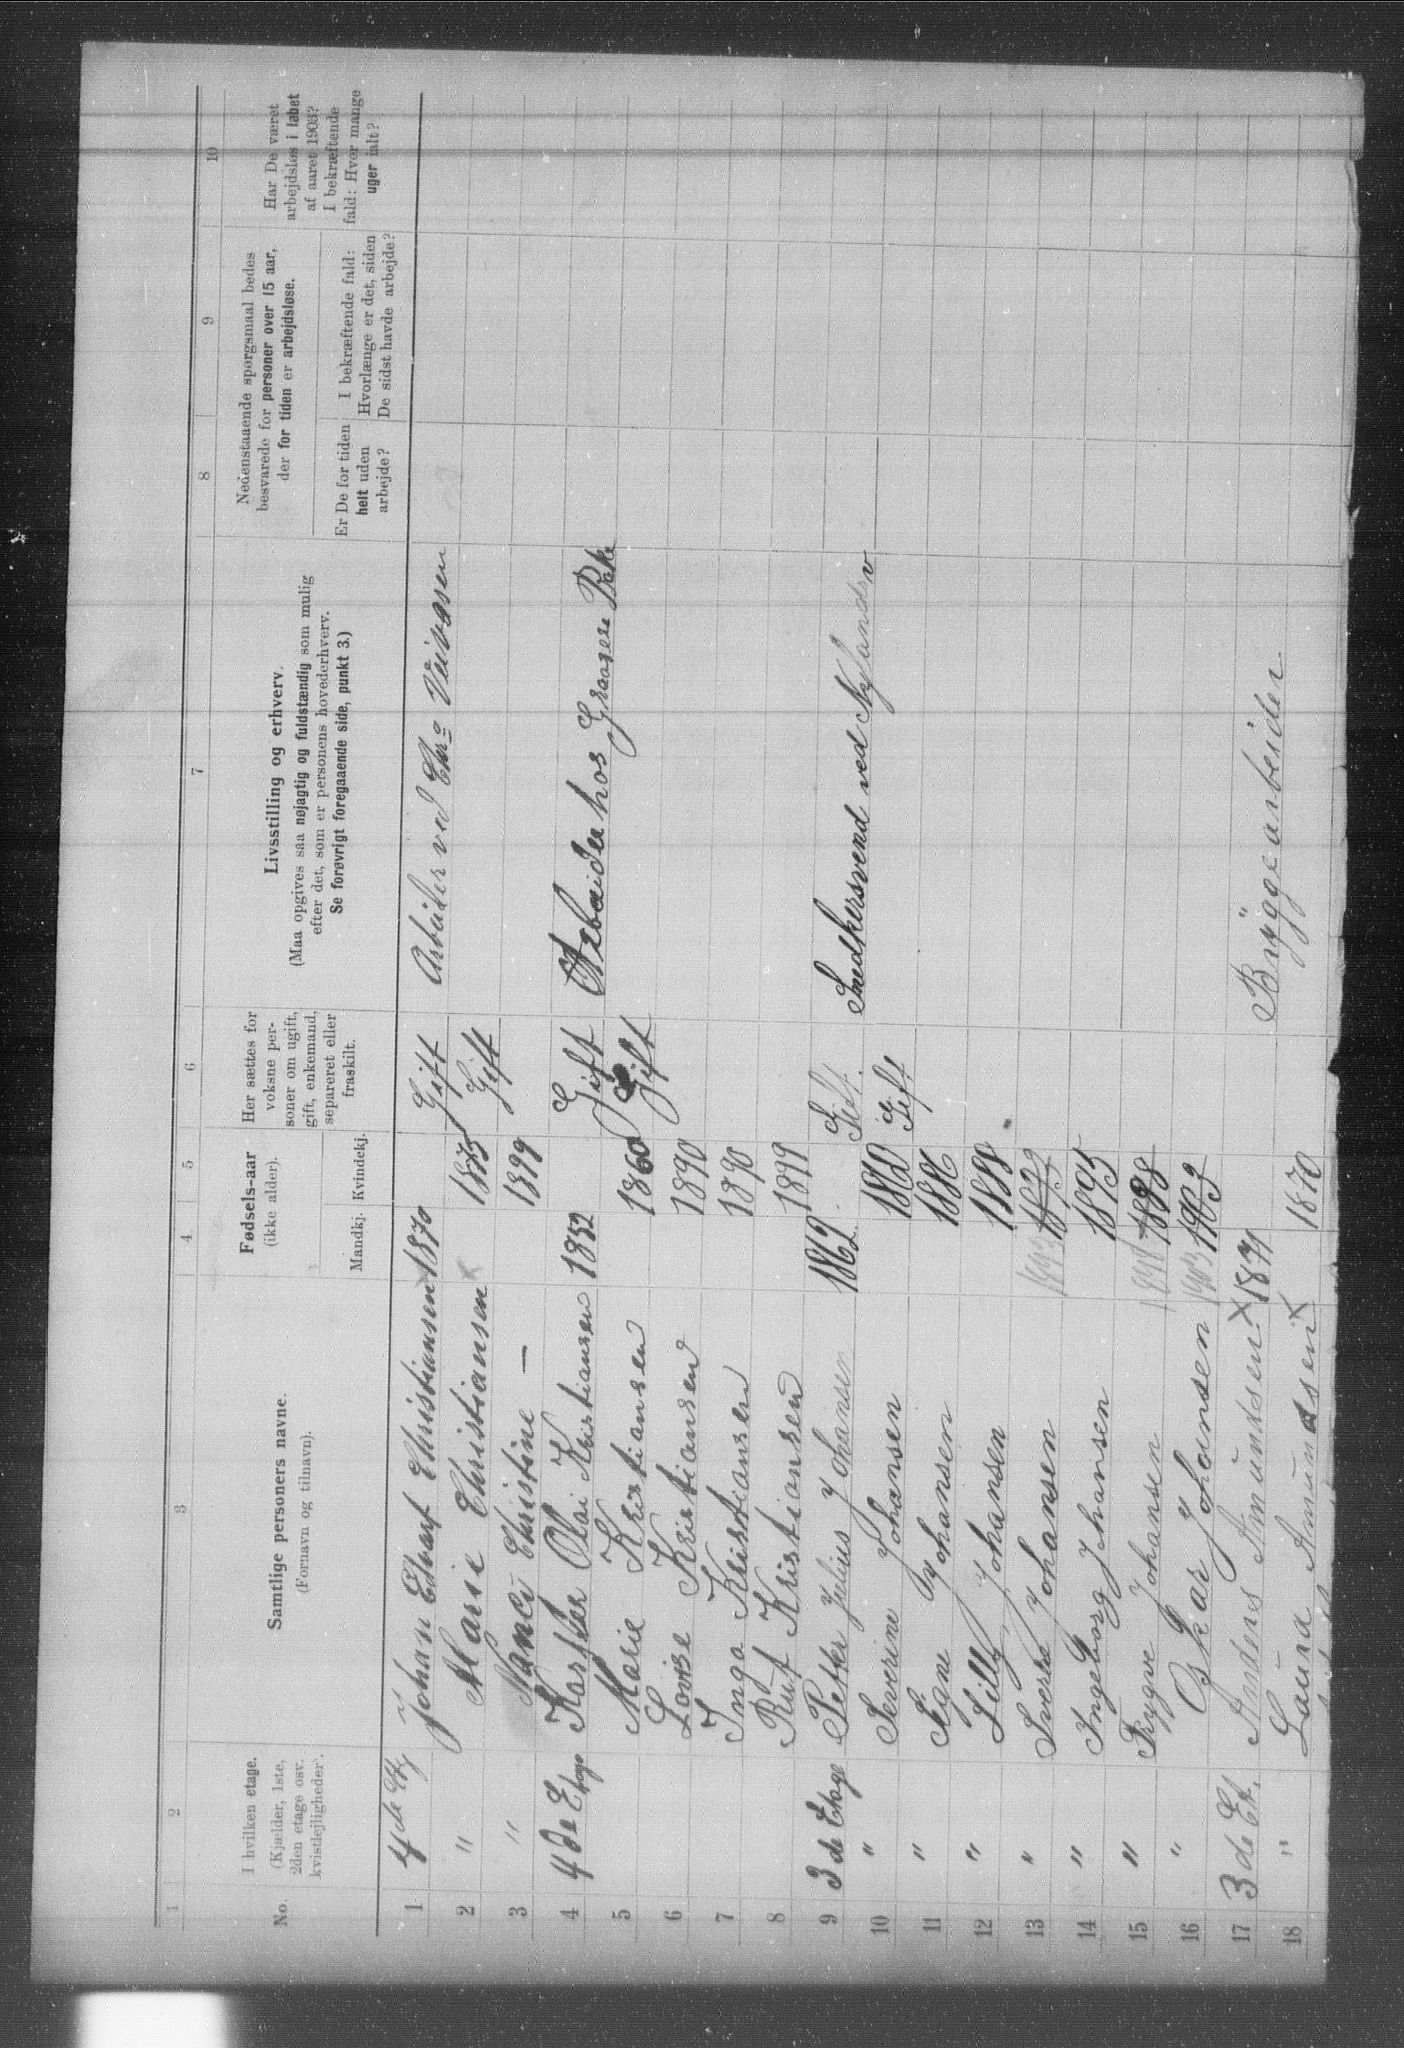 1 2 3 4 5 6 7 8 9 10
No.
I hvilken etage.
(Kjælder, 1ste,
2den etage osv.
kvistlejligheder.
Samtlige personers navne.
(Fornavn og tilnavn).
Fødsels-aar
(ikke alder).
Mandkj. Kvindekj.
Her sættes for
voksne per-
soner om ugift,
gift, enkemand,
separeret eller
fraskilt.
Livsstilling og erhverv.
(Maa opgives saa nøjagtig og fuldstændig som mulig
efter det, som er personens hovederhverv.
Se forøvrigt foregaaende side, punkt 3.)
Nedenstaaende spørgsmaal bedes
besvarede for personer over 15 aar,
der for tiden er arbejdsløse.
Er De for tiden
helt uden
arbejde?
I bekræftende fald:
Hvorlænge er det, siden
De sidst havde arbejde?
Har De været
arbejdsløs i løbet
af aaret 1903?
I bekræftende
fald: Hvor mange
uger ialt?
1 4 de Etg Johan Christiansen × 1870 Gift Arbeider ved
2 " Marie Christiansen × 1875 Gift
3 " Nancy Christine — 1899
4 4 de Etage Olai Kristiansen 1852 Gift Arbeider hos
5 Marie Kristiansen 1860 Gift
6 Lovise Kristiansen 1890
7 Inga Kristiansen 1890
8 Rut Kristiansen 1899
9 3 de Etage Petter Julius Johansen 1862 Gift. Snedkersvend ved Nylandsv
10 " Severine Johansen 1860 Gift
11 " Signe Johansen 1886
12 " Lilly Johansen 1888
13 " Sverre Johansen 1893 1893
14 " Ingeborg Johansen 1895
15 " Trygve Johansen 1898 1898
16 " Oskar Johansen 1903 1903
17 3 de Et. Anders Amundsen × 1871 Byggearbeider.
18 " Laura Amundsen × 1870